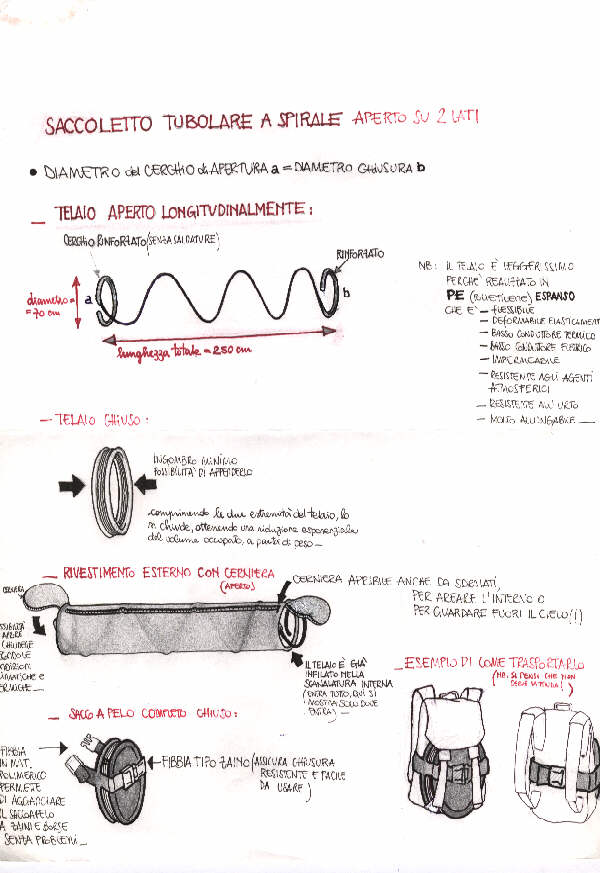 SACCOLETTO TUBOLARE A SPIRALE APERTO SU 2 LATI
• DIAMETRO del CERCHIO di APERTURA a = DIAMETRO CHIUSURA b
— TELAIO APERTO LONGITUDINALMENTE:
CERCHIO RINFORZATO (SENZA SALDATURE)
RINFORZATO
diametro =
= 70 cm
a
b
lunghezza totale = 250 cm
NB: IL TELAIO È LEGGERISSIMO
PERCHE' REALIZZATO IN
PE (POLIETILENE) ESPANSO
CHE E' — FLESSIBILE
— DEFORMABILE ELASTICAMENT
— BASSO CONDUTTORE TERMICO
— BASSO CONDUTTORE ELETTRICO
— IMPERMEABILE
— RESISTENTE AGLI AGENTI
ATMOSFERICI
— RESISTENTE ALL'URTO
— MOLTO ALLUNGABILE —
— TELAIO CHIUSO:
INGOMBRO MINIMO
POSSIBILITÀ DI APPENDERLO
comprimendo le due estremità del telaio, lo
si chiude, ottenendo una riduzione esponenziale
del volume occupato, a parità di peso —
— RIVESTIMENTO ESTERNO CON CERNIERA
(APERTO)
CERNIERA APRIBILE ANCHE DA SDRAIATI,
PER AREARE L'INTERNO O
PER GUARDARE FUORI IL CIELO!!)
CERNIERA
APRIRE
CHIUDERE
IL TELAIO È GIÀ
INFILATO NELLA
SCANALATURA INTERNA
(ENTRA TUTTO, QUI SI
MOSTRA SOLO DOVE
ENTRA) —
— ESEMPIO DI COME TRASPORTARLO
(NB. SI PENSI CHE NON
SERVE LA TENDA!)
— SACCO A PELO COMPLETO CHIUSO:
FIBBIA
IN MAT.
POLIMERICO
PERMETTE
DI AGGANCIARE
IL SACCOAPELO
A ZAINI E BORSE
SENZA PROBLEMI —
FIBBIA TIPO ZAINO (ASSICURA CHIUSURA
RESISTENTE E FACILE
DA USARE)